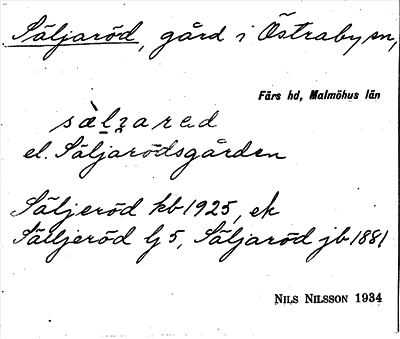 Säljaröd, gård i Östraby sn,
Färs hd, Malmöhus län
sæ̀lʒared
el. Säljarödsgården
Säljeröd kb 1925, ek
Säljeröd Lj 5, Säljaröd jb 1881
NILS NILSSON 1934